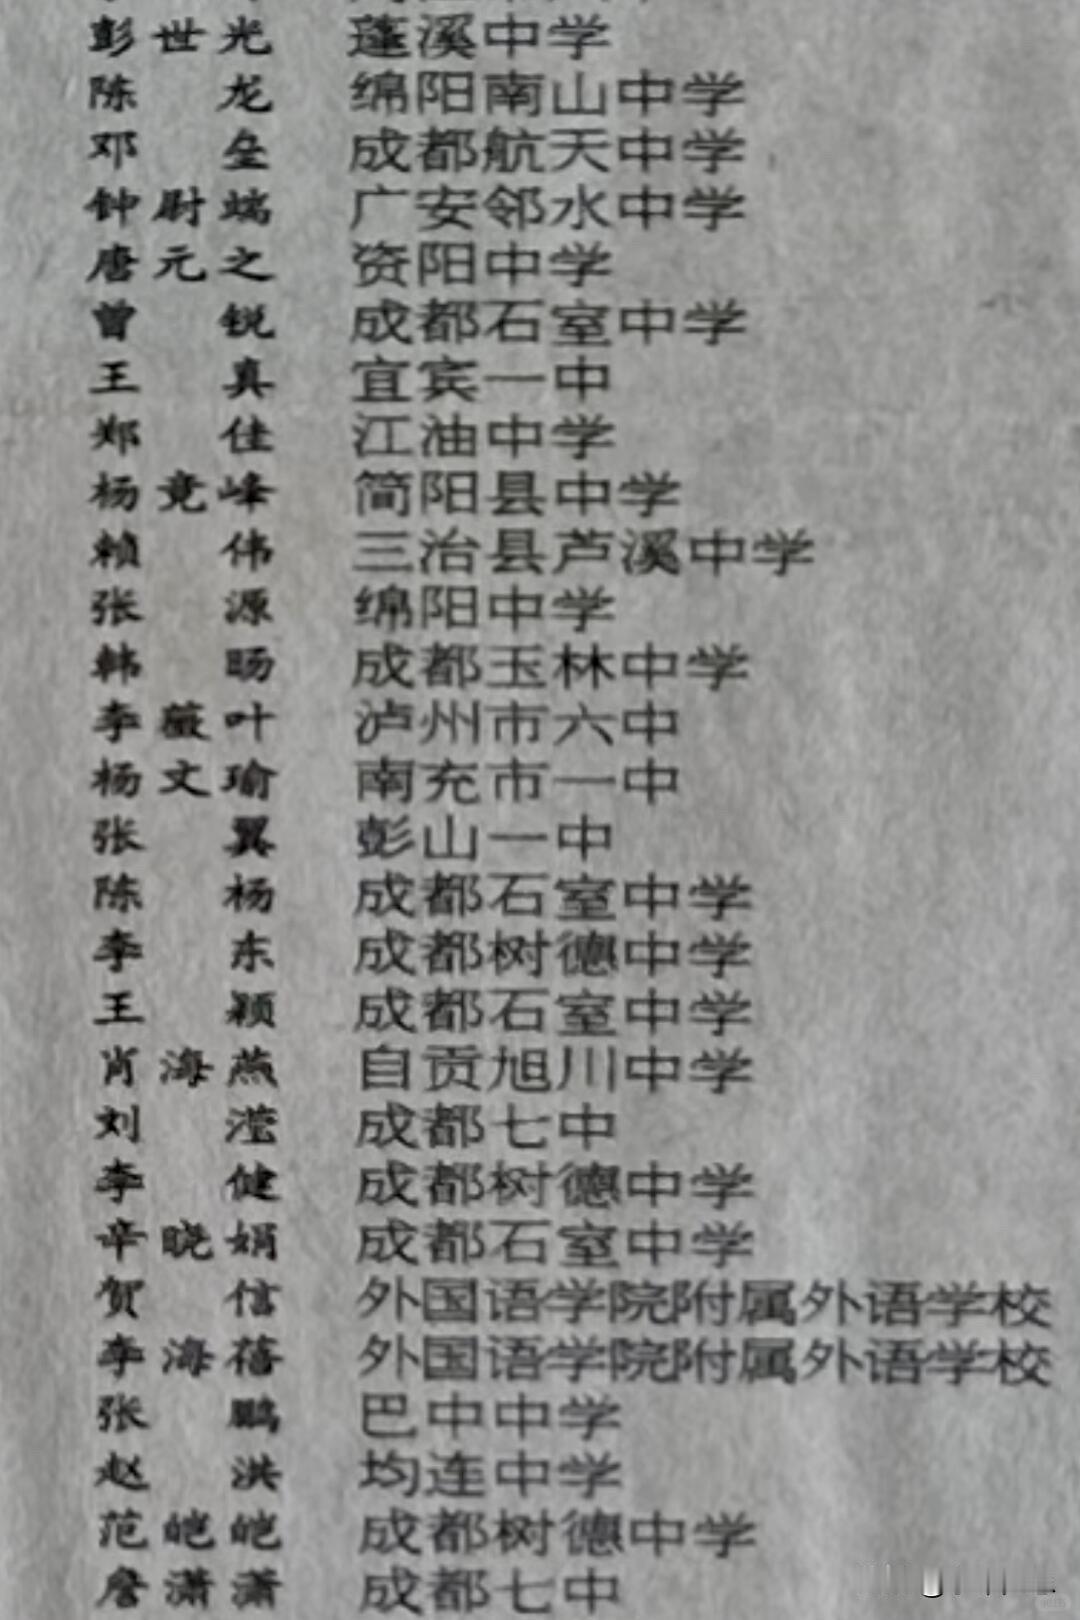 彭世光 蓬溪中学
陈龙 绵阳南山中学
邓垒 成都航天中学
钟尉端 广安邻水中学
唐元之 资阳中学
曾锐 成都石室中学
王真 宜宾一中
郑佳 江油中学
杨竞峰 简阳县中学
赖伟 三治县芦溪中学
张源 绵阳中学
韩旸 成都玉林中学
李薇叶 泸州市六中
杨文瑜 南充市一中
张翼 彭山一中
陈杨 成都石室中学
李东 成都树德中学
王颖 成都石室中学
肖海燕 自贡旭川中学
刘滢 成都七中
李健 成都树德中学
辛晓娟 成都石室中学
贺信 外国语学院附属外语学校
李海蓓 外国语学院附属外语学校
张鹏 巴中中学
赵洪 均连中学
范皑皑 成都树德中学
詹潇潇 成都七中